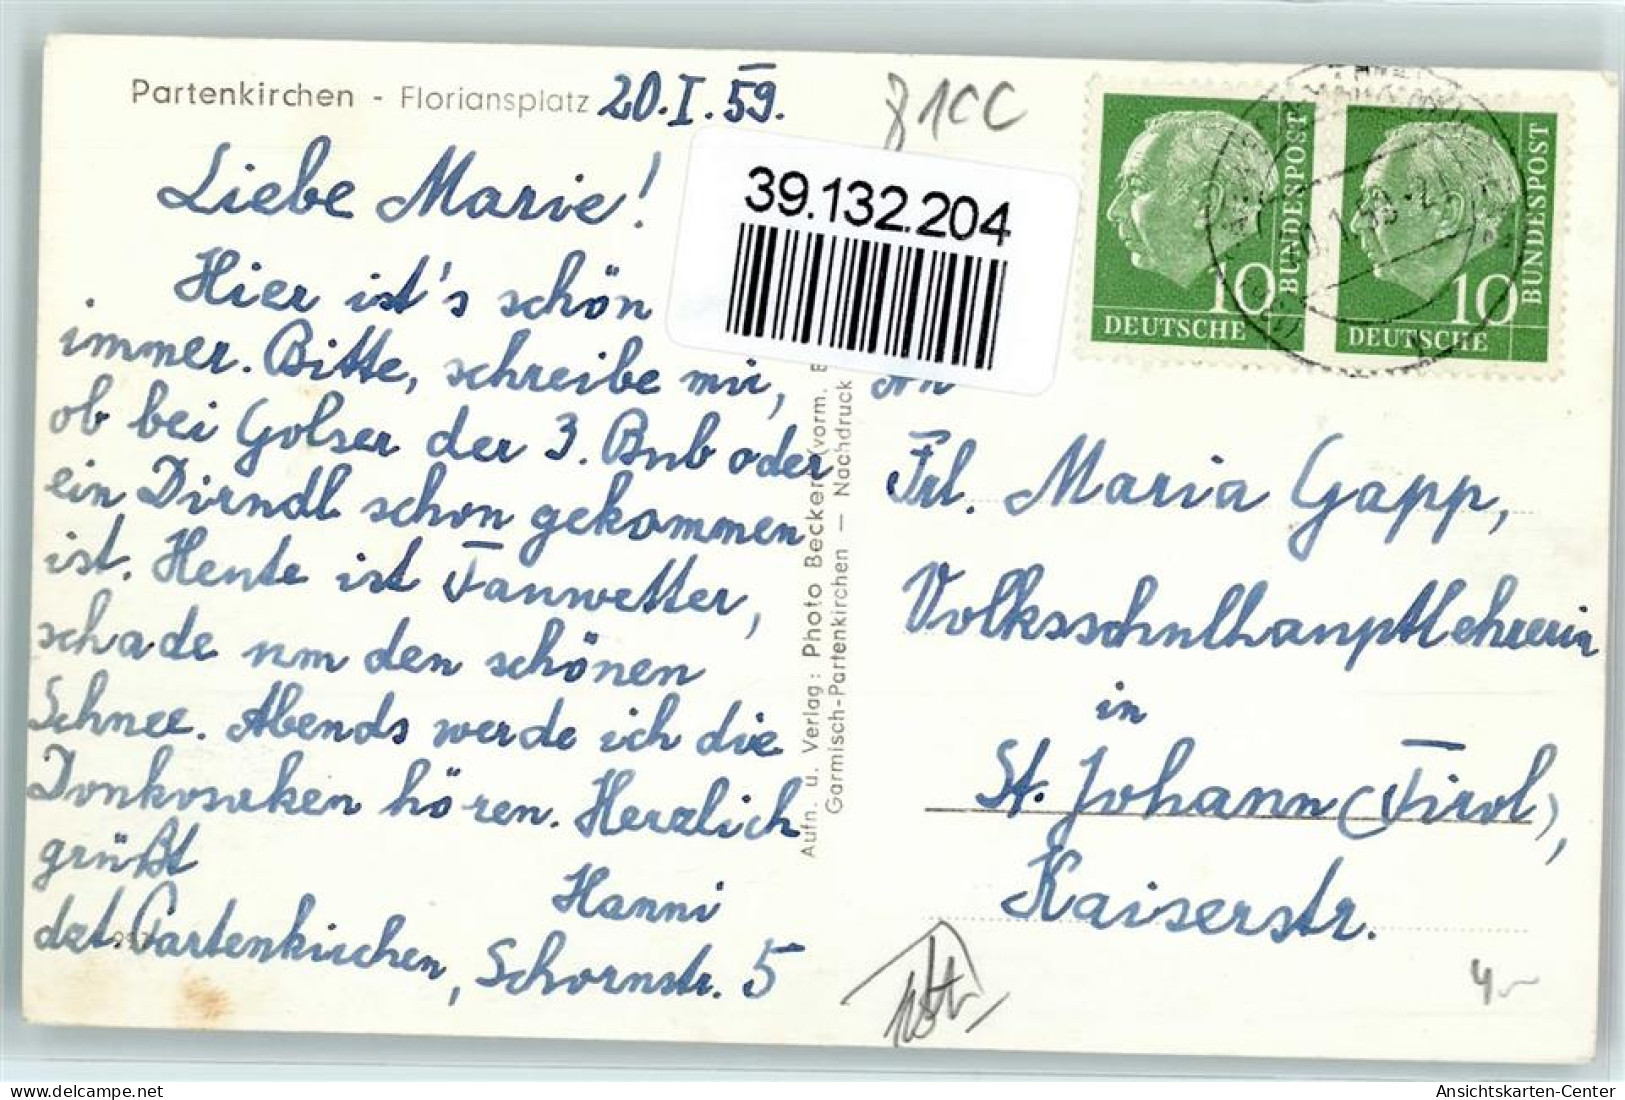 Partenkirchen - Floriansplatz 20.I.59.
Liebe Marie!
Hier ist's schön
immer. Bitte, schreibe mir,
ob bei Golser der 3. Bub oder
ein Dirndl schon gekommen
ist. Heute ist Tauwetter,
schade um den schönen
Schnee. Abends werde ich die
Donkosaken hören. Herzlich
grüßt
Hanni
dzt. Partenkirchen, Schornstr. 5
39.132.204
Aufn. u. Verlag: Photo Beckert (vorm. B
Garmisch-Partenkirchen — Nachdruck
10
BUNDESPOST
DEUTSCHE
10
BUNDESPOST
DEUTSCHE
An
Frl. Maria Gapp,
Volksschulhauptlehrerin
in
St. Johann (Tirol),
Kaiserstr.
Ansichtskarten-Center